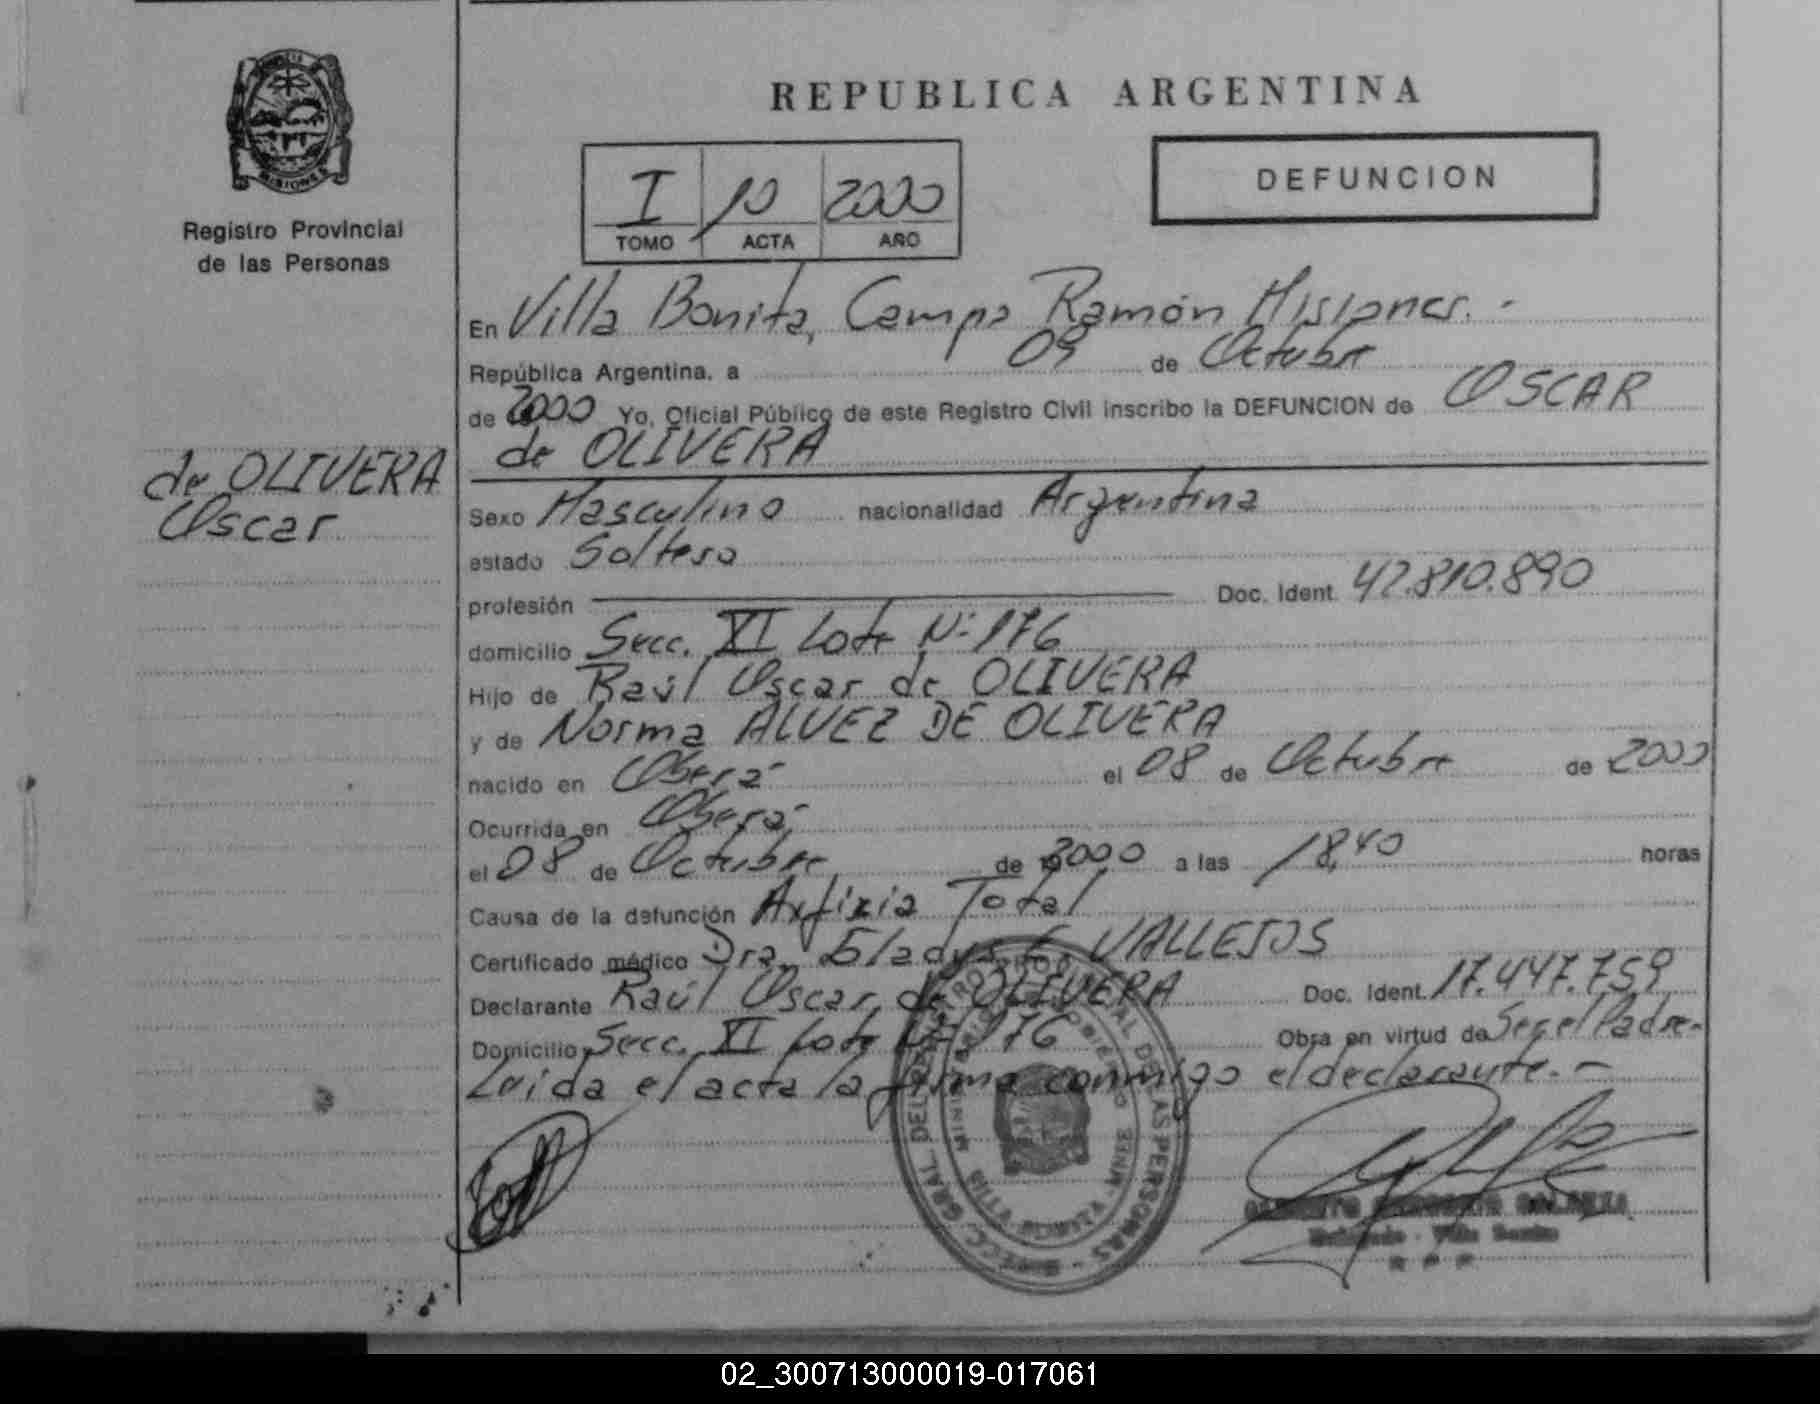 MISIONES
Registro Provincial
de las Personas
de OLIVERA
Oscar
REPUBLICA ARGENTINA
I 10 2000
TOMO ACTA AÑO
DEFUNCION
En Villa Bonita, Campo Ramón Misiones.-
República Argentina, a 09 de Octubre
de 2000 Yo, Oficial Público de este Registro Civil inscribo la DEFUNCION de OSCAR
de OLIVERA
Sexo Masculino nacionalidad Argentina
estado Soltero
profesión Doc. Ident. 42.810.890
domicilio Secc. XI Lote Nº 176
Hijo de Raúl Oscar de OLIVERA
y de Norma ALVEZ DE OLIVERA
nacido en Oberá el 08 de Octubre de 2000
Ocurrida en Oberá
el 08 de Octubre de 2000 a las 18,40 horas
Causa de la defunción Axfixia Total
Certificado médico Dra. Gladys E. VALLEJOS
Declarante Raúl Oscar de OLIVERA Doc. Ident. 17.447.759
Domicilio Secc. XI Lote Nº 176 Obra en virtud de Ser el Padre.-
Leida el acta la firma conmigo el declarante.-
DEL REGISTRO PROVINCIAL DE LAS PERSONAS
VILLA BONITA - MNES
Delegado - Villa Bonita
R P P
02_300713000019-017061